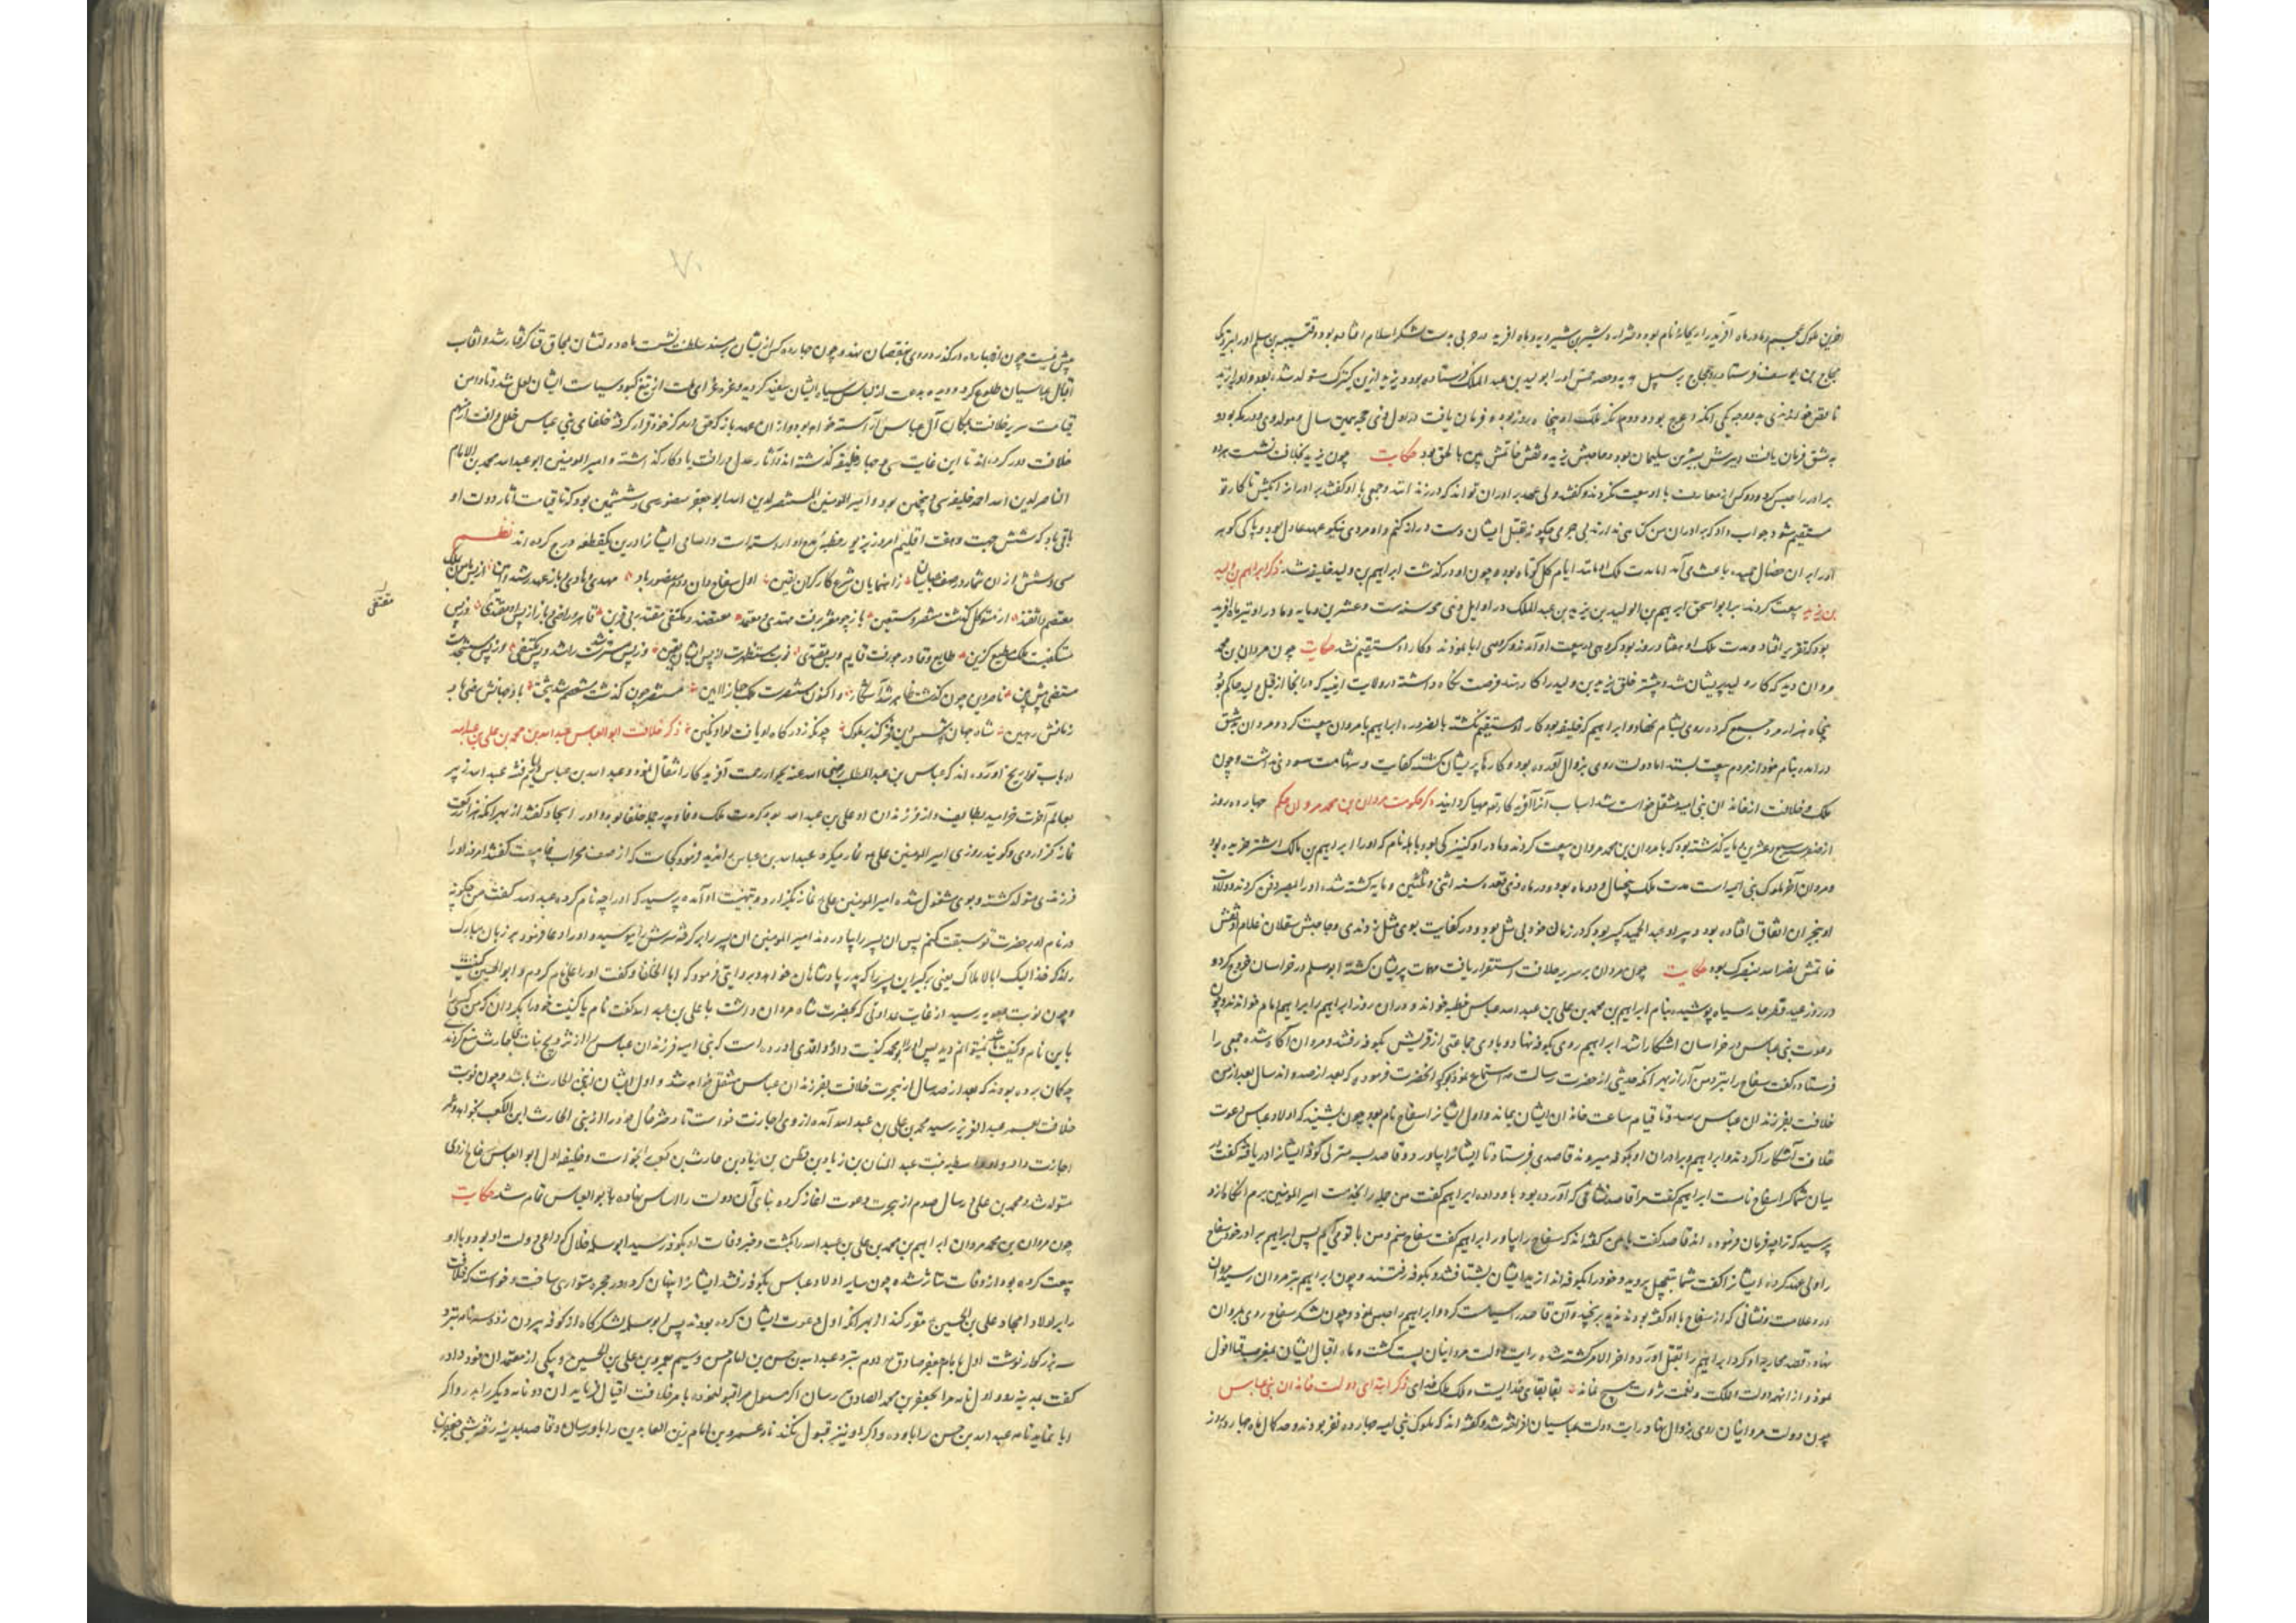 اخرین ملوک عجم و مادر ماه آفرید را ریحانه نام بود و دختر زاده شیرین شیرویه و ماه افرید در حربی بدست لشکر اسلام افتاده بود و قتیبه بن مسلم اورا بنزدیک
حجاج بن یوسف فرستاده و حجاج بر سبیل هدیه اورا بولید بن عبد الملک فرستاده بود و یزید ازین کنیزک متولد شد
ناقص خوانندی بدو وجه یکی آنکه اعرج بود و دوم آنکه ملک او پنجاه روز بود و فرمان یافت در اول ذی حجه همین سال
بدمشق فرمان یافت و دبیرش سلیمان بود و حاجبش یزید و نقش خاتمش حکایت چون یزید بخلافت نشست
برادر را حبس کرد و دو کس از معارف با او بیعت نکردند و گفتند ولی عهد برادران تواند که در زندانند و جمعی با او گفتند برادر انرا بکش تا کار تو
مستقیم شود جواب داد که برادران من گناهی ندارند بی جرمی چگونه بقتل ایشان دست دراز کنم و او مردی نیکو عهد عادل بود و پاکی گوهر
اورا بر ان خصال حمید باعث می آمد اما مدت ملک ایام گل کوتاه بود و چون او درگذشت ابراهیم بن ولید خلیفه شد ذکر ابراهیم بن ولید
بن یزید بیعت کردند بر ابو اسحق ابراهیم بن الولید بن یزید بن عبد الملک در اوایل ذی حجه سنه ست و عشرین و مایه و مادر او
بود که تقریر افتاد و مدت ملک او هفتاد روز بود گروهی در بیعت او آمدند و گروهی ابا نمودند و کار او مستقیم نشد حکایت چون مروان بن محمد
مروان دید که کار ولید پریشان شد و بیشتر خلق یزید بن ولید را کارهند فرصت نگاه داشته در ولایت
پنجاه هزار مرد جمع کرده روی بشام نهاد و ابراهیم که خلیفه بود کار او مستقیم نگشته بالضروره ابراهیم با مروان بیعت کرد و مروان بدمشق
در آمده بنام خود از مردم بیعت بستد اما دولت روی بزوال آورده بود و کارها پریشان گشته کفایت و شهامت سودی نداشت و چون
ملک و خلافت از خاندان بنی امیه منتقل خواست شد اسباب آنرا آفریدکار تع مهیا گردانید ذکر حکومت مروان بن محمد مروان حکم چهارده روز
از صفر سنه سبع و عشرین و مایه گذشته بود که با مروان بن محمد مروان بیعت کردند و مادر او کنیزکی بود که اورا ابراهیم بن مالک اشتر خریده بود
و مروان آخر ملوک بنی امیه است مدت ملک پنجسال و دو ماه بود و در ماه ذی قعده سنه اثنی و ثلثین و مایه کشته شد
و دبیر او عبد الحمید کبیر بود که در زمان خود بی مثل بود و در کفایت بوی مثل زدندی و حاجبش سقلان غلام او نقش
خاتمش بود حکایت چون مروان بر سریر خلافت استقرار یافت مهمات پریشان گشته ابو مسلم در خراسان خروج کرد و
در روز عید فطر جامه سیاه پوشیده بنام ابراهیم بن محمد بن علی بن عبد الله عباس خطبه خواند و در ان روز ابراهیم را ابراهیم امام خواندند و چون
دعوت بنی عباس در خراسان اشکارا شد ابراهیم روی بکوفه نهاد و با وی جماعتی از قریش بکوفه رفتند و مروان آگاه شده جمعی را
فرستاد و گفت سفاح را بنزد من آرید از بهر آنکه حدیثی از حضرت رسالت استماع نموده بود که انحضرت فرمود که بعد از صد و اند سال بعد از من
خلافت بفرزندان عباس رسد و تا قیام ساعت خاندان ایشان بماند و اول ایشانرا سفاح نام بود چون بشنید که اولاد عباس دعوت
خلافت آشکارا کردند و ابراهیم و برادران او بکوفه میروند قاصدی فرستاد تا ایشانرا بیاورد و قاصد بمنزلی کوفه ایشانرا دریافته گفت در
میان شما کرا سفاح نامست ابراهیم گفت مرا قاصد نشانی که آورده بود باو داده ابراهیم گفت من جمله را بخدمت امیر المومنین برم انگاه ازو
پرسید که ترا چه فرمان فرموده اند قاصد گفت با من گفته اند که سفاح را بیاور ابراهیم گفت سفاح منم و من با تو می آیم پس ابراهیم برادر خود سفاح
را ولی عهد کرده ایشانرا گفت شما بتعجیل بروید و خود را بکوفه اندازید ایشان بشتافتند و بکوفه رفتند و چون ابراهیم بنزد مروان رسید مروان
درو علامت و نشانی که از سفاح با او گفته بودند ندید برنجید و آن قاصد را سیاست کرد و ابراهیم را حبس نمود و چون لشکر سفاح روی بمروان
نهاد و قصد محاربه او کرد ابراهیم را بقتل آورد و اخر الامر کشته شد رایت دولت مروانیان پست گشت و ماه اقبال ایشان بمغرب فنا افول
نمود و از انهمه دولت و ملکت و نعمت و ثروت هیچ نماند بقا بقای خدایست و ملک ملک خدای ذکر ابتدای دولت خاندان بنی عباس
چون دولت مروانیان روی بزوال نهاد و رایت دولت عباسیان افراشته شد و گفته اند که ملوک بنی امیه چهارده نفر بودند و صد کال ماه چهارده روز
بیش نیست چون از چهارده درگذرد روی بنقصان نهد و چون چهارده کس از ایشان بر مسند سلطنت نشست ماه دولتشان بمحاق فنا گرفتار شد و آفتاب
اقبال عباسیان طلوع کرد و دیده بدعت از لباس سیاه ایشان سفید گردید و غره غرای ملت از تیغ کبود سیاست ایشان لعل شد و تا دامن
قیامت سریر خلافت بمکان آل عباس آراسته خواهد بود و از ان عهد باز که حق در مرکز خود قرار گرفته خلفای بنی عباس خلل و آفت از حریم
خلافت دور کرده اند تا این غایت سی و چهار خلیفه گذشته اند و آثار عدل و رافت یادگار گذاشته و امیر المومنین ابو عبد الله محمد بن الامام
الناصر لدین الله احمد خلیفه سی و پنجمین بود و امیر المومنین المستنصر لدین الله ابو جعفر منصور سی و ششمین بود که تا قیامت آثار دولت او
باقی باد که شش جهت و هفت اقلیم امروز بزیور خطبه او اراسته است و اسامی ایشانرا درین یکقطعه درج کرده اند نظم
سی و شش از ان شمار در صف عباسیان ز انهمه پایان شرع کار گزاران یقین اول سفاح دان دوم منصور باد مهدی و هادی و باز عهد رشد و امین از پس مامون ملک
معتصم و واثقند از متوکل گذشت منتصر و مستعین باز چو معتز برفت مهتدی و معتمد معتضد و مکتفی مقتدر بی قرین قاهر و راضی و باز از پس او متقی وز پس
مقتفی
مستکفیست ملک مطیع گزین طایع و قادر چو رفت قایم و پس مقتدی نوبت مستظهرست از پس ایشان یقین وز پس مسترشدست راشد و پس مقتفی وز پس مستنجدست
مستضی پیش بین ناصر دین چون گذشت ظاهر شد آشکار واکنون مستنصرست ملک جهانرا امین مستنصر چون گذشت مستعصم شد باد جهانش رضا باد
زمانش رهین شاه جهان چرخ بر ملوک چونکه ز درگاه او یافت لوا و نگین ذکر خلافت ابو العباس عبد الله بن محمد بن علی بن عبد الله
ارباب تواریخ آورده اند که عباس بن عبد المطلب رضی الله عنه بجوار رحمت آفریدکار انتقال نمود و عبد الله بن عباس
بعالم آخرت خرامید بطایف و از فرزندان او علی بن عبد الله بود که مدت ملک وفا و پدر جمله خلفا بود و اورا سجاد گفتند از بهر آنکه هزار رکعت
نماز گزاردی و گویند روزی امیر المومنین علی نماز میکرد عبد الله بن عباس را ندید فرمود کجاست که از صف محراب غایبست گفتند امروز اورا
فرزندی متولد گشته و بوی مشغول شده امیر المومنین علی نماز بگزارد و بتهنیت او آمده پرسید که اورا چه نام کرده عبد الله گفت من چگونه
در نام او بر حضرت تو سبقت کنم پس ان پسر را بیاوردند امیر المومنین ان پسر را بر گرفته سرش را ببوسید و اورا دعا فرمود بر زبان مبارک
راند که خذ الیک ابا الاملاک یعنی بگیر این پسر را که پدر پادشاهان خواهد بود و روایتی فرمود که ابا الخلفا و گفت اورا علی نام کردم و ابو الحسن کنیت
و چون نوبت بمعویه رسید از غایت عداوتی که بحضرت شاه مردان داشت با علی بن عبد الله گفت نام یا کنیت خود را بگردان که من کسی را
باین نام و کنیت نمیتوانم دید پس او ابو محمد کنیت داد و اقدی آورده است که بنی امیه فرزندان عباس را از تزویج بنات بنی الحارث منع کردند
چه گمان برده بودند که بعد از صد سال از هجرت خلافت بفرزندان عباس منتقل خواهد شد و اول ایشان از بنی الحارث باشد و چون نوبت
خلافت بعمر عبد العزیز رسید محمد بن علی بن عبد الله آمده از وی اجازت خواست تا دختر خال خود را از بنی الحارث ابن الکعب بخواهد و عمر
اجازت داد و او ریطه بنت عبد الله بن زیاد بن حارث بن کعب را بخواست و خلیفه اول ابو العباس سفاح ازوی
متولد شد و محمد بن علی در سال صدم از هجرت دعوت اغاز کرده بنای آن دولت را اساس نهاده بابو العباس تمام شد حکایت
چون مروان بن محمد مروان ابراهیم بن محمد بن علی بن عبد الله را بکشت و خبر وفات او بکوفه رسید ابو سلمه خلال که داعی دولت او بود و با او
بیعت کرده بود از وفات متاثر شده چون سایر اولاد عباس بکوفه رفتند ایشانرا پنهان کرده در حجره متواری ساخت و خواست که خلافت
را بر اولاد امجاد علی بن الحسین مقرر کند از بهر آنکه اول دعوت ایشان کرده بودند پس ابو سلمه لشکرگاه از کوفه بیرون زد و سه نامه بنزد
سه بزرگوار نوشت اول بامام جعفر صادق دوم بنزد عبد الله بن حسن بن امام حسن و سیم بعمرو بن علی بن الحسین و یکی از معتمدان خود داده
گفت بمدینه رود اول نامه مرا بجعفر بن محمد الصادق رسان اگر مسئول مرا قبول نموده بامر خلافت اقبال فرماید ان دو نامه دیگر را بدر و اگر
ابا نماید نامه عبد الله بن حسن را باو ده و اگر او نیز قبول نکند نامه عمرو بن امام زین العابدین را باو رسان و قاصد بمدینه رفته